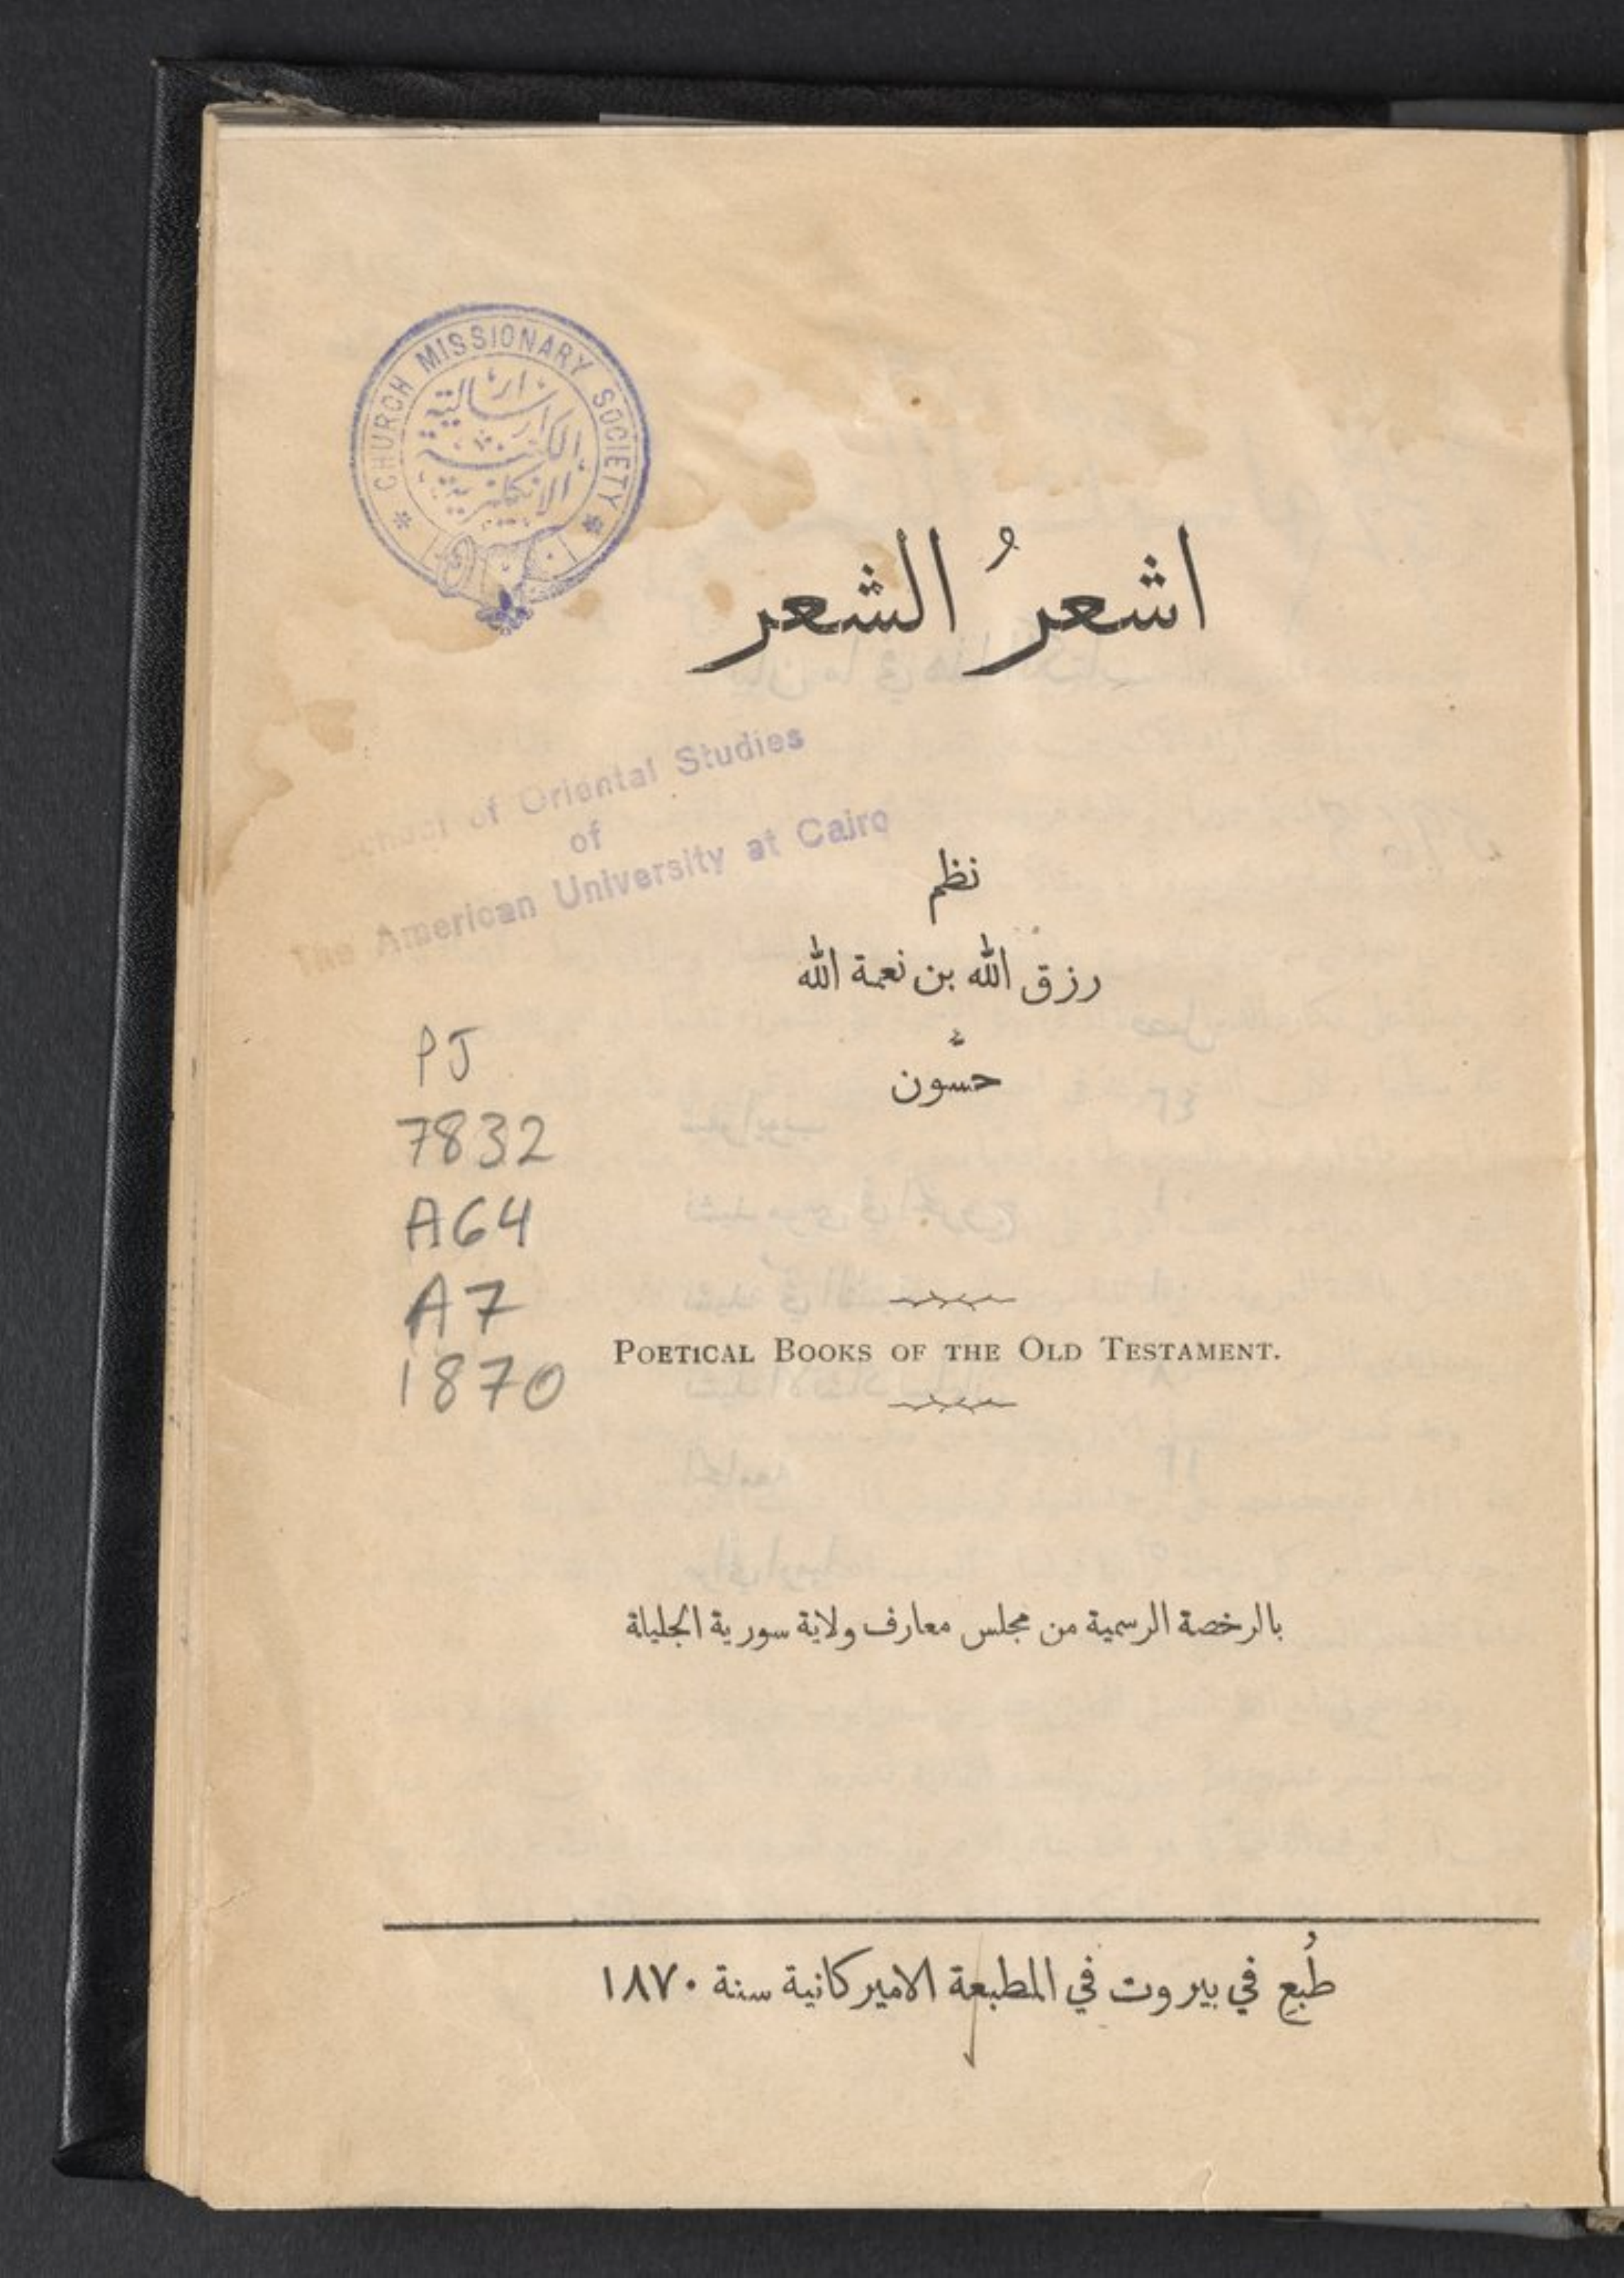 CHURCH MISSIONARY SOCIETY
ارسالية
الكنيسة
الانكليزية
اشعرُ الشعر
School of Oriental Studies
of
The American University at Cairo
نظم
رزق الله بن نعمة الله
حسّون
PJ
7832
A64
A7
1870
POETICAL BOOKS OF THE OLD TESTAMENT.
بالرخصة الرسمية من مجلس معارف ولاية سورية الجليلة
طُبِع في بيروت في المطبعة الاميركانية سنة ١٨٧٠